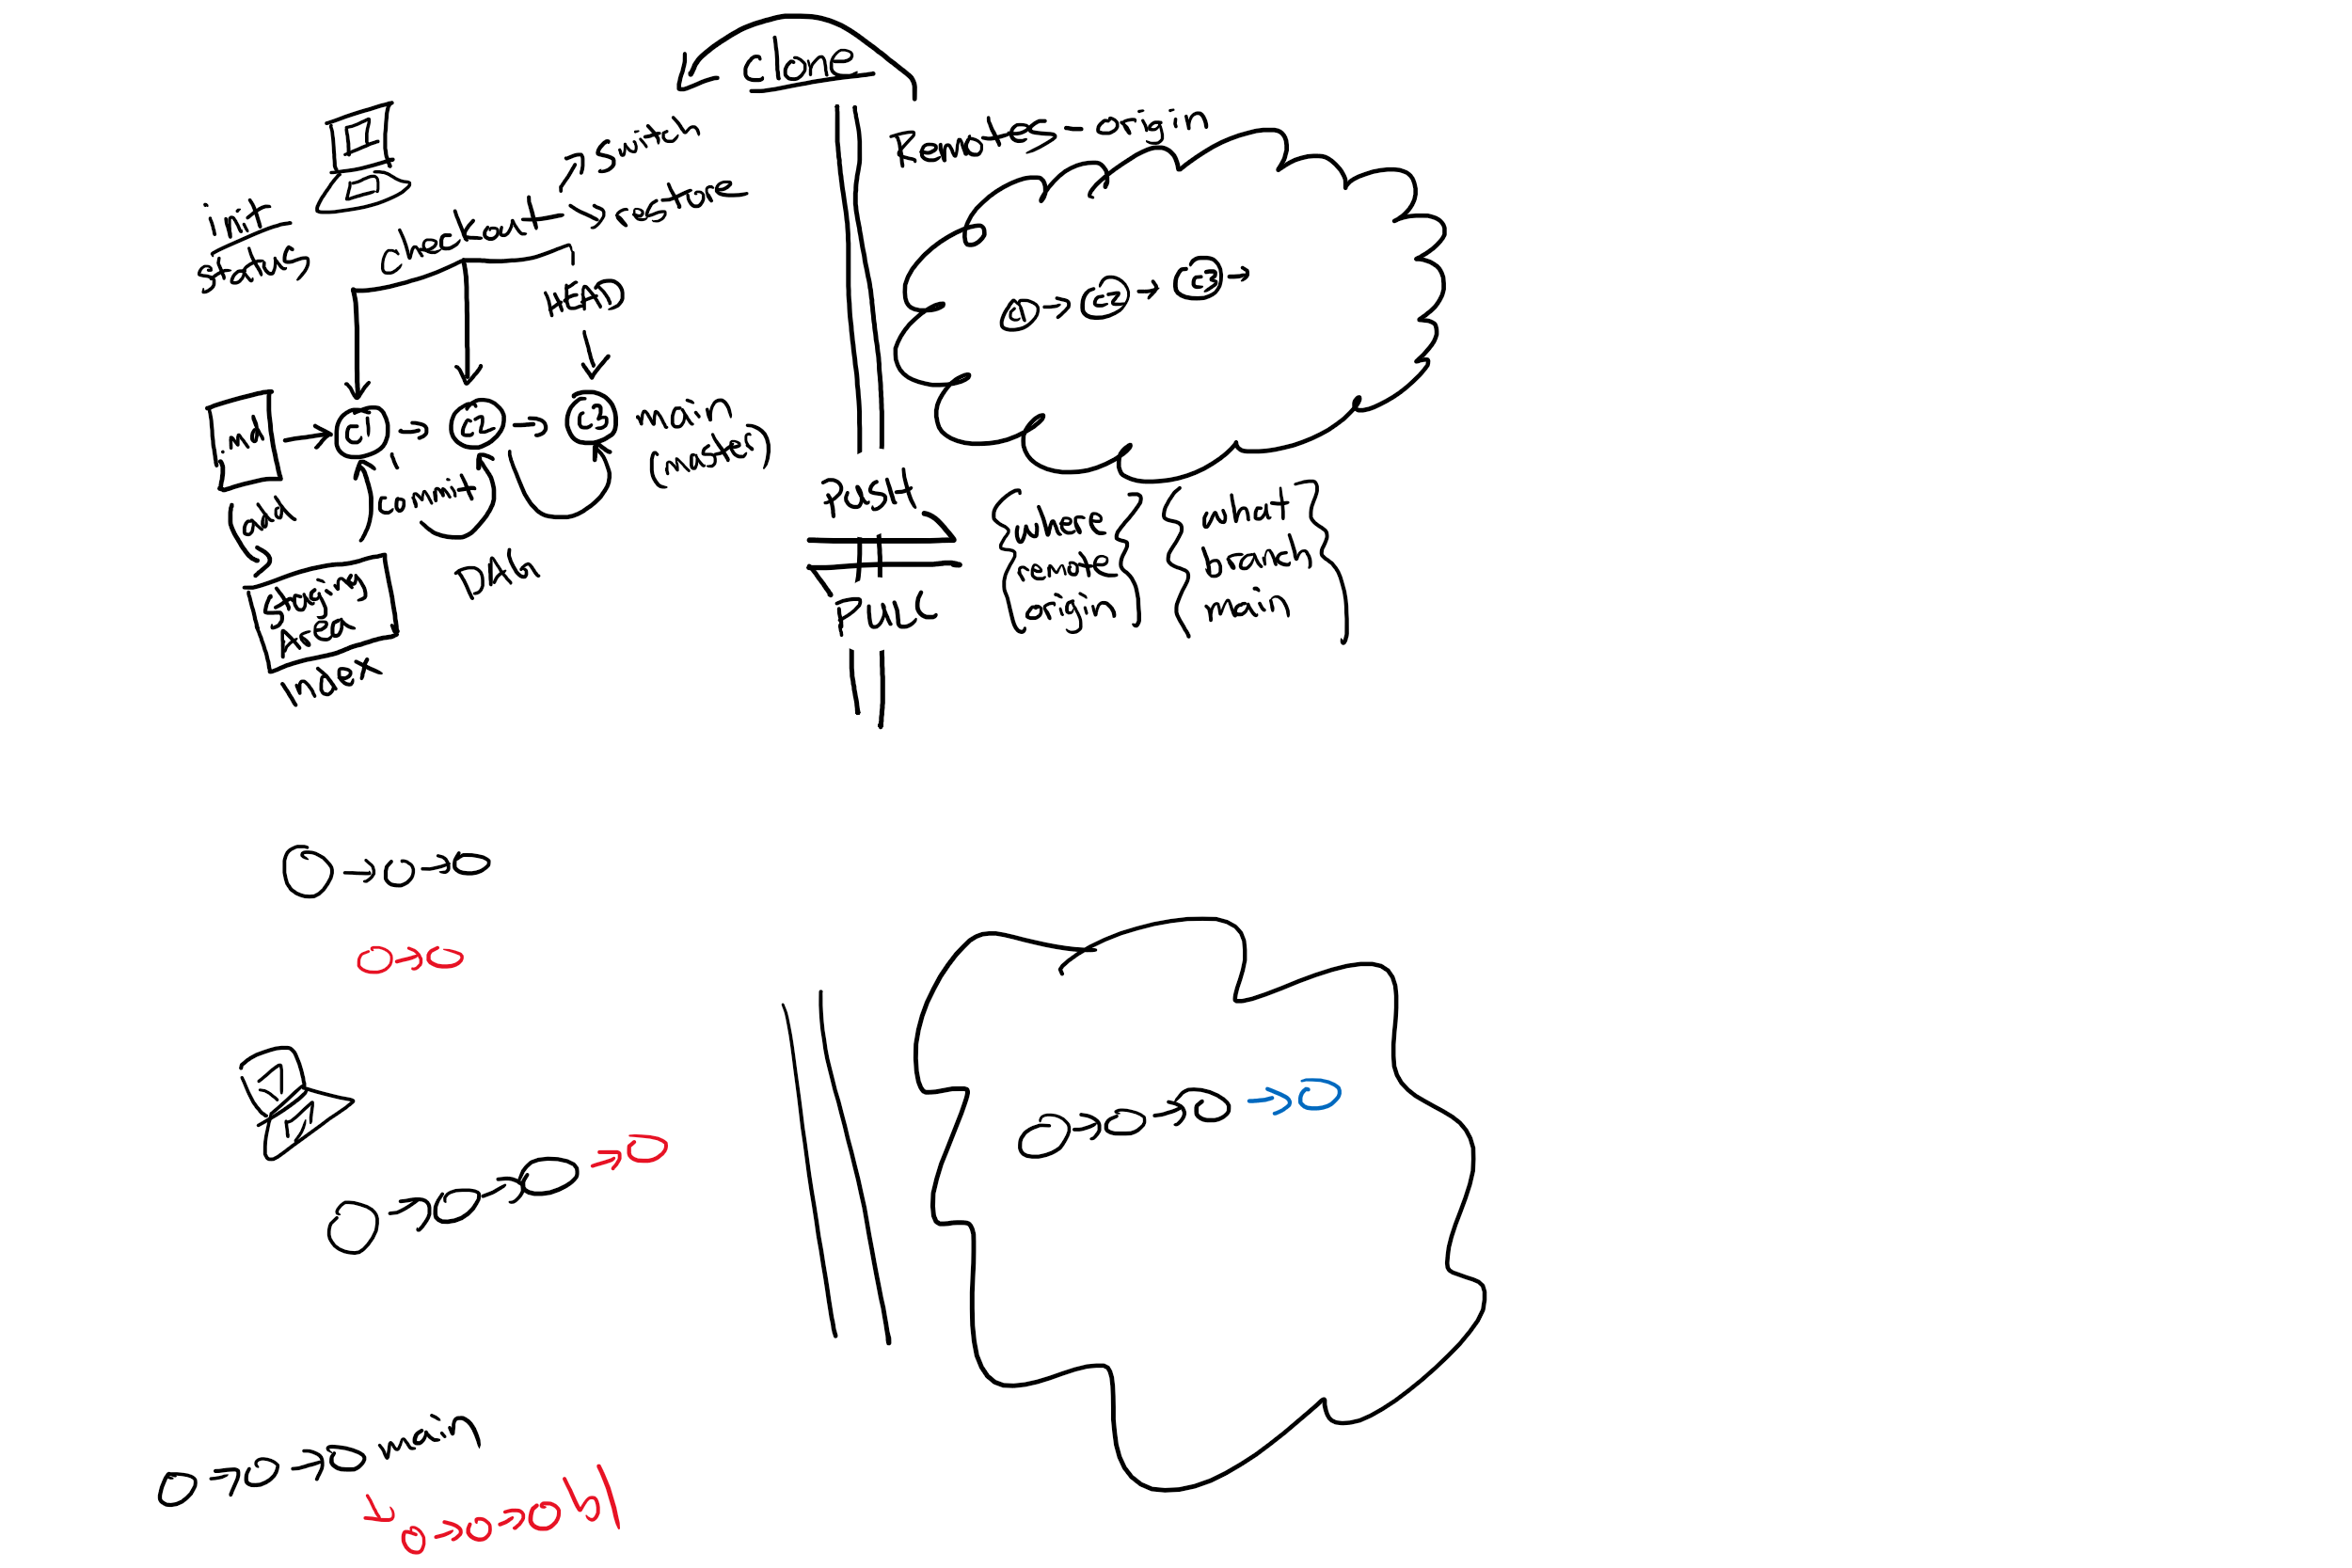 clone
Remotes - origin
init
status
checkout
switch
restore
HEAD
c1
c2
c3
.md
c1
c2
c3
main
(master)
add
commit
DAG
Staging
Area
Index
PUSH
PULL
where
remote
origin
what
branch
main
main
b1